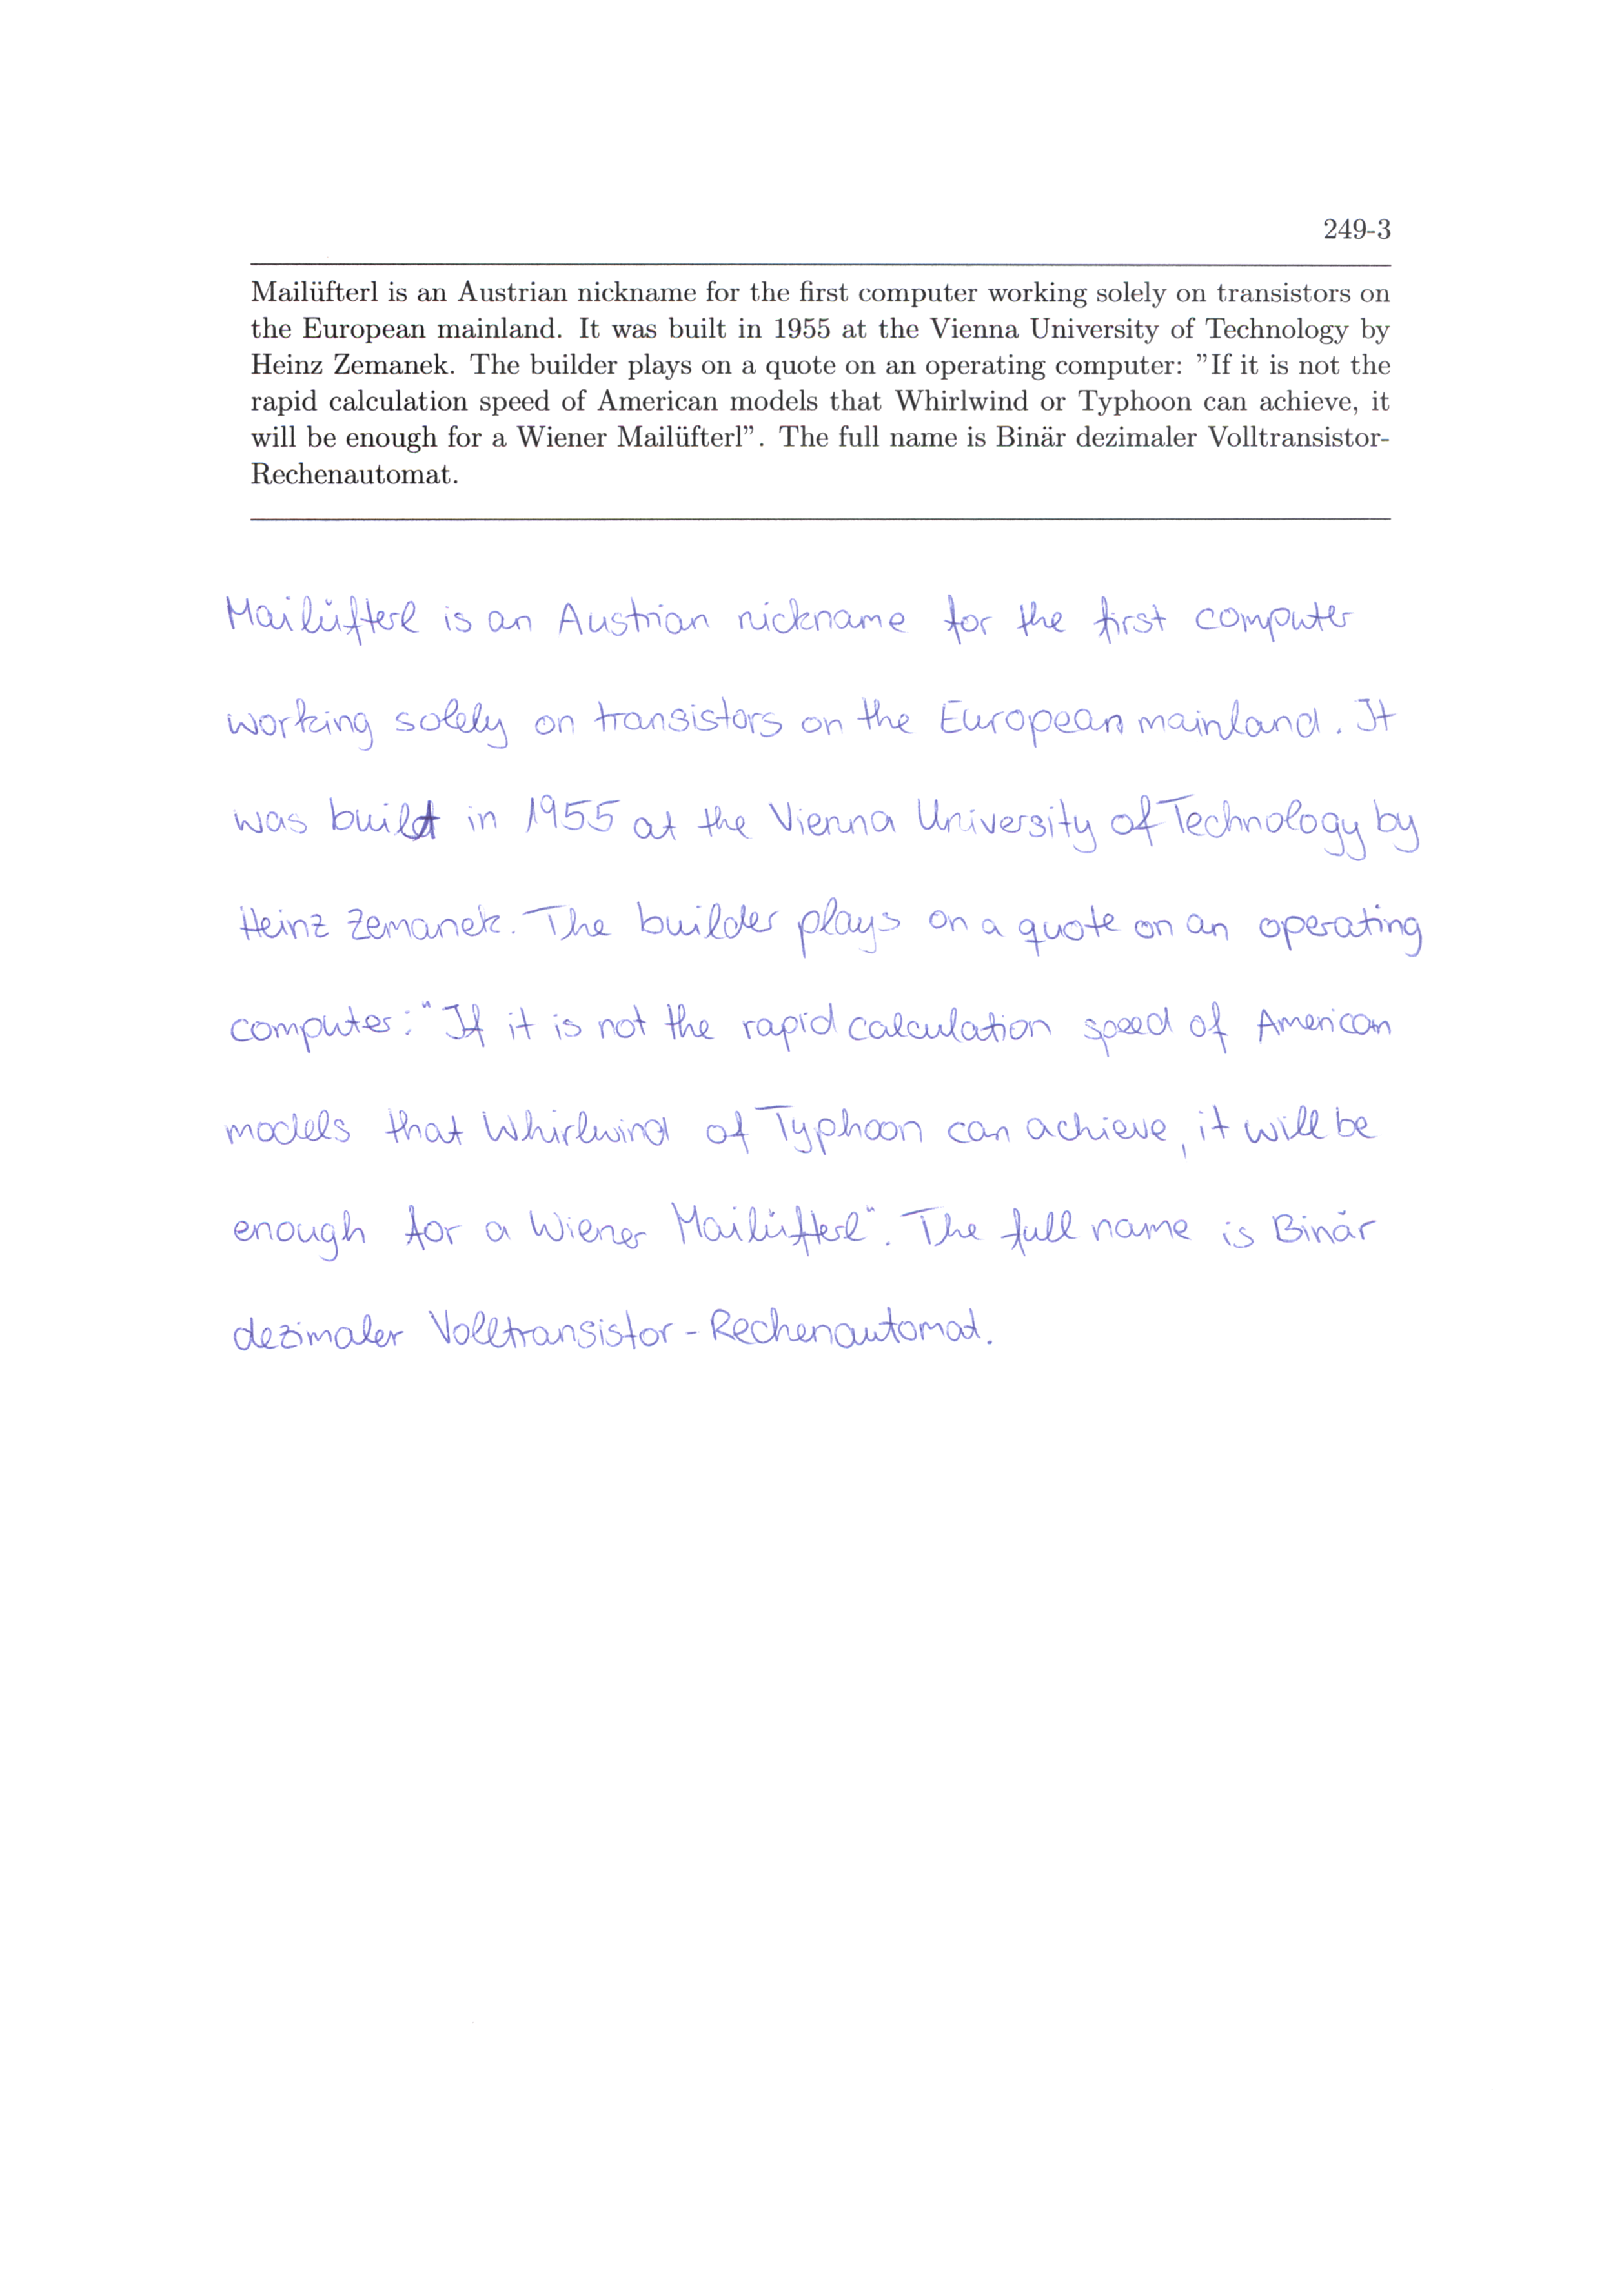 249-3
Mailüfterl is an Austrian nickname for the first computer working solely on transistors on
the European mainland. It was built in 1955 at the Vienna University of Technology by
Heinz Zemanek. The builder plays on a quote on an operating computer: ”If it is not the
rapid calculation speed of American models that Whirlwind or Typhoon can achieve, it
will be enough for a Wiener Mailüfterl”. The full name is Binär dezimaler Volltransistor-
Rechenautomat.
Mailüfterl is an Austrian nickname for the first computer
working solely on transistors on the European mainland. It
was built in 1955 at the Vienna University of Technology by
Heinz Zemanek. The builder plays on a quote on an operating
computer: "If it is not the rapid calculation speed of American
models that Whirlwind of Typhoon can achieve, it will be
enough for a Wiener Mailüfterl". The full name is Binär
dezimaler Volltransistor - Rechenautomat.